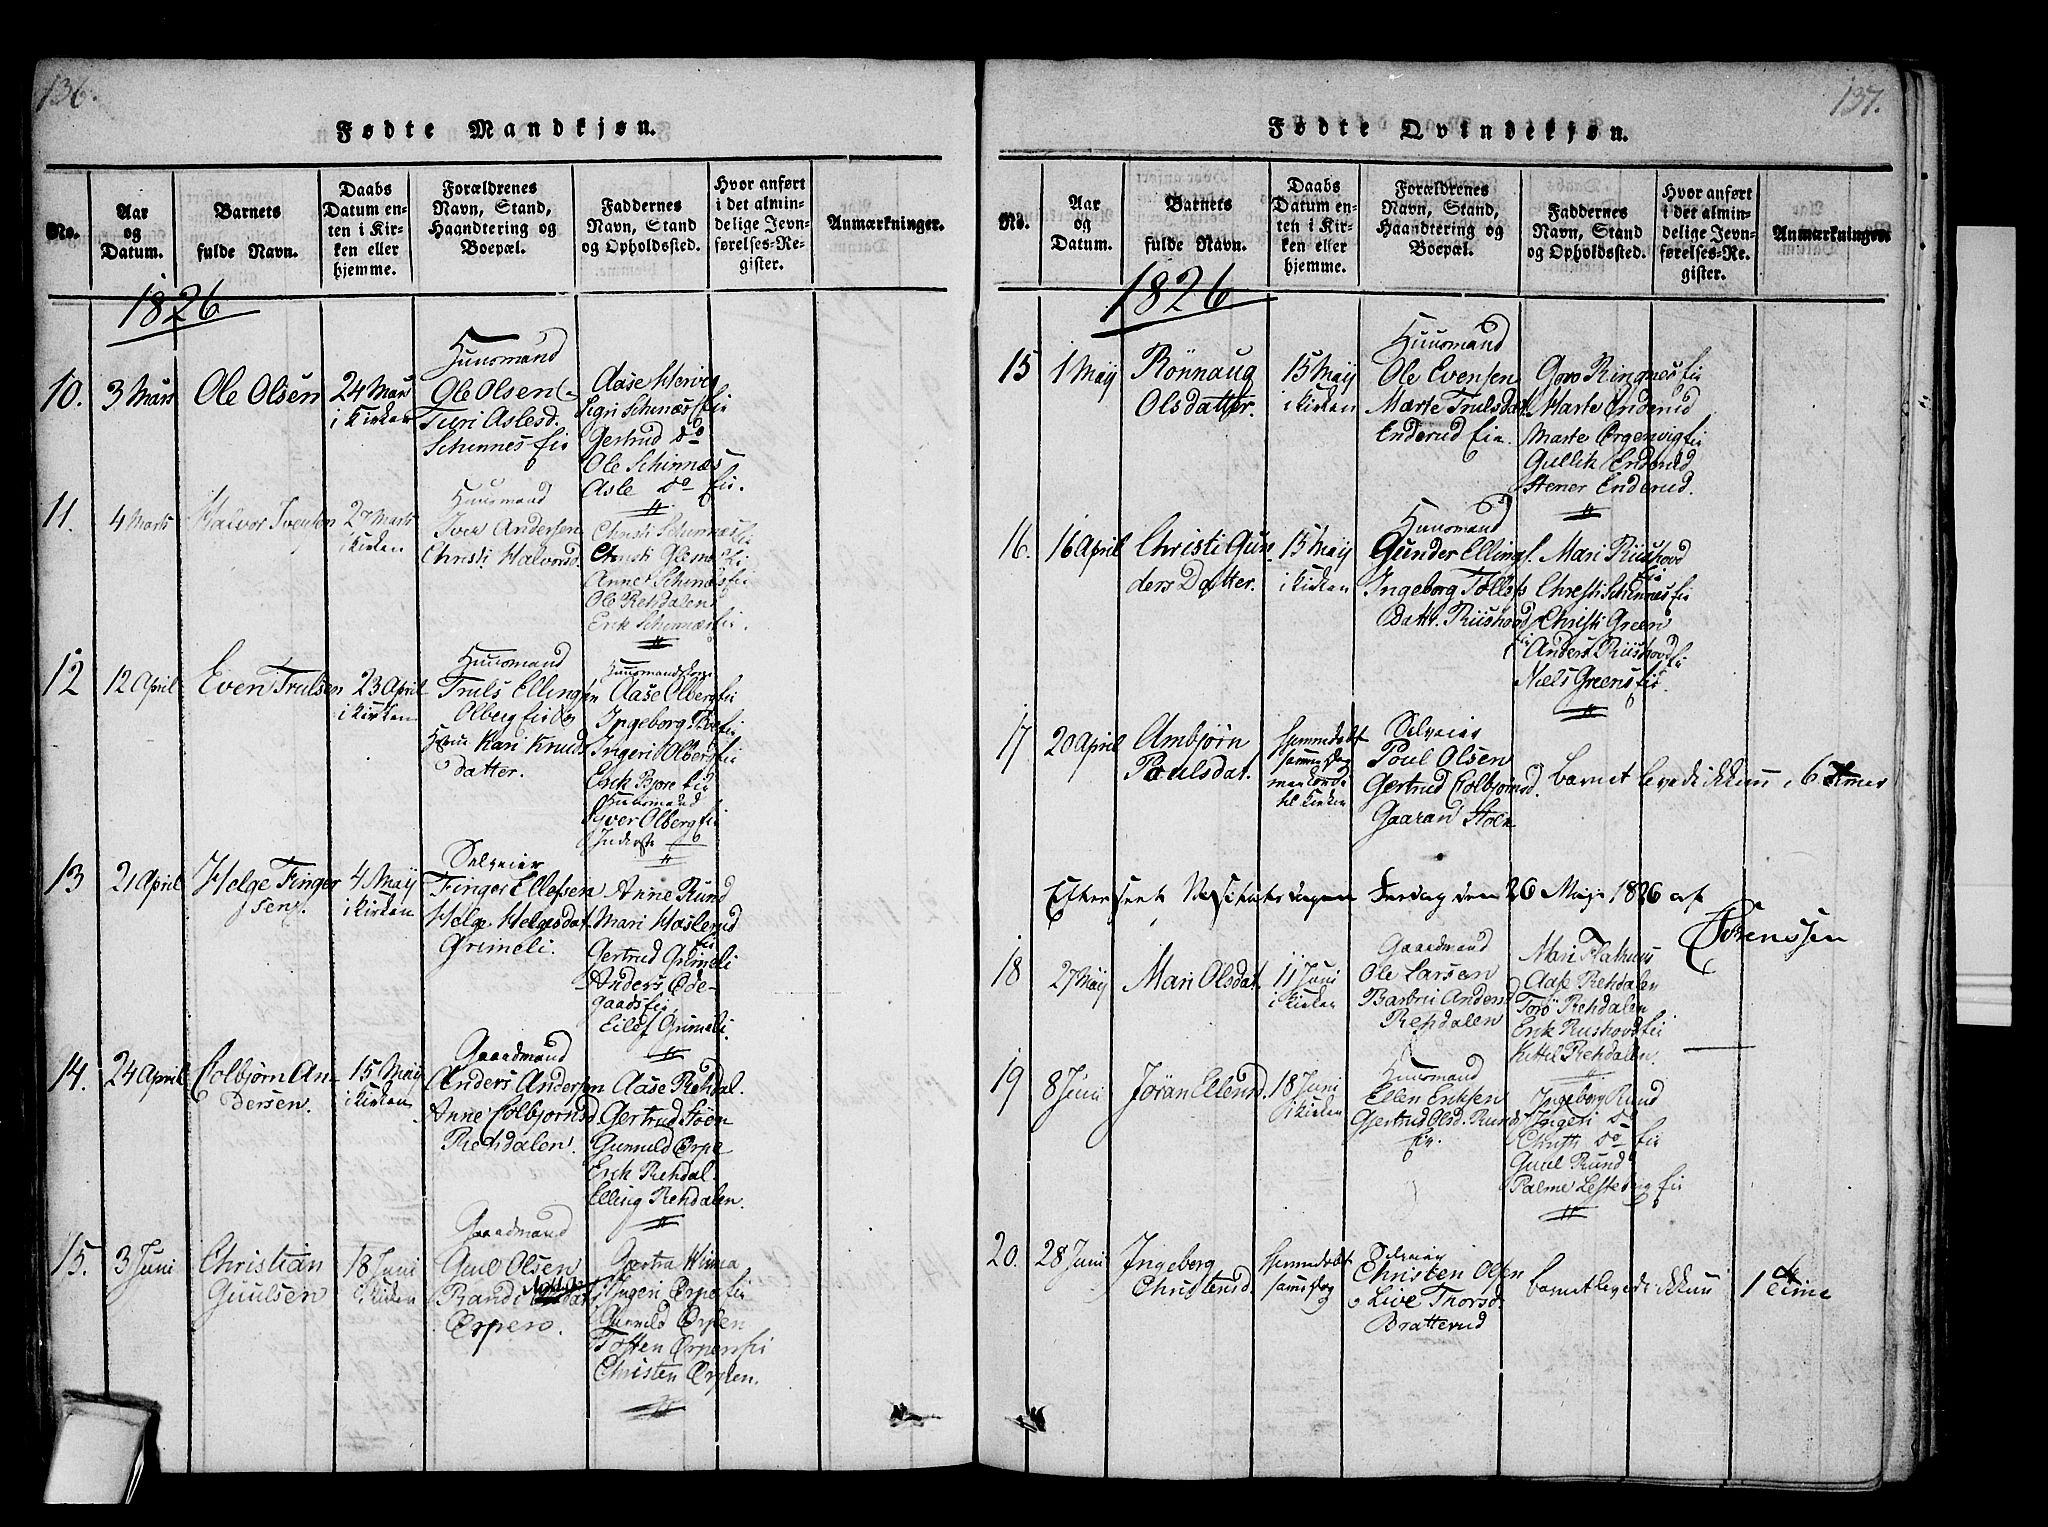 136.
Fødte Mandkjøn.
No.
Aar
og
Datum.
Barnets
fulde Navn.
Daabs
Datum en-
ten i Kir-
ken eller
hjemme.
Forældrenes
Navn, Stand,
Haandtering og
Boepæl.
Faddernes
Navn, Stand
og Opholdssted.
Hvor anført
i det almin-
delige Jevn-
førelses-Re-
gister.
Anmærkninger.
1826
10.
3 Mars
Ole Olsen
24 Mars
i Kirken
Huusmand
Ole Olsen
Turi Aslesd.
Schinnes Eie
Aase Hervig
Sigri Schinæs Eie
Gertrud do
Ole Schinnæs
Asle do Eie.
11.
4 Marts
Halvor Iversen
27 Marts
i Kirken
Huusmand
Iver Andersen
Christi Halvorsd.
Christi Schinnæs
Christi Glesnæs Eie
Anne Schinæs Eie
Ole Rehdalen
Erik Schinnæs Eie.
12
12 April
Even Trulsen
23 April
i Kirken
Huusmand
Truls Ellingsen
Olberg Eie og
Kari Knuds
datter.
Aase Olberg Eie
Ingeborg Bøe Eie
Ingeri Olberg Eie
Erik Bjøre Eie
Huusmand
Iver Olberg Eie
Inderste
13
21 April
Helge Finger
sen.
4 Maij
i Kirken
Selveier
Finger Ellefsen
Helge Helgesdat.
Grimeli.
Anne Rund
Mari Haslerud
Eie
Gertrud Grimeli
Anders Øde-
gaards Eie
Eilef Grimeli.
14.
24 April
Colbjørn An-
dersen.
15 Maij
i Kirken
Gaardmand
Anders Andersen
Anne Colbjornsd.
Rehdalen.
Aase Rehdal.
Gertrud Støen
Gunnuld Ørpe
Erik Rehdal
Elling Rehdalen.
15.
3 Juni
Christian
Guulsen
18 Juni
i Kirken
Gaardmand
Guul Olsen
Randi
Ørpen.
Gertru Wiima
Ingeri Ørpe Eie
Gunnuld Ørpen
Tosten Ørpens Eie
Christen Ørpen.
137.
Fødte Qvindekjøn.
No.
Aar
og
Datum.
Barnets
fulde Navn.
Daabs
Datum en-
ten i Kir-
ken eller
hjemme.
Forældrenes
Navn, Stand,
Haandtering og
Boepæl.
Faddernes
Navn, Stand
og Opholdssted.
Hvor anført
i det almin-
delige Jevn-
førelses-Re-
gister.
Anmærkninger.
1826
15
1 Maij
Rönnaug
Olsdatter.
15 Maij
i Kirken
Huusmand
Ole Evensen
Marte Trulsdat.
Enderud Eie.
Goro Ringnes Eie
Marte Enderud
Marte Ørgenvig Eie
Gullik Enderud
Stener Enderud.
16.
16 April
Christi Gun
ders Datter.
15 Maij
i Kirken
Huusmand
Gunder Ellings.
Ingeborg Tollefs
Datt. Riishovd
Eie
Mari Riishovd
Eie
Christi Schinnes Eie
Christi Green
Anders Riishovd Eie
Niels Greens Eie.
17
20 April
Ambjörn
Poulsdat.
Hjemmedøbt
samme Dag
men
til Kirken
Selveier
Poul Olsen
Gertrud Colbjørnsd.
Gaaran Stoen
barnet levede ikkun 6 Timer
Efterseet Visitatsdagen Fredag den 26 Maji 1826 af
Sørenssen
18
27 Maij
Mari Olsdat.
11 Juni
i Kirken
Gaardmand
Ole Larsen
Barbroi Andersd
Rehdalen
Mari Flathuus
Aase Rehdalen
Torö Rehdalen
Erik Rushovd Eie
Kittil Rehdalen.
19
8 Juni
Jöran Ellensd.
18 Juni
i Kirken
Huusmand
Ellen Eriksen
Gjertrud Olsd. Runds
Eie.
Ingeborg Rund
Ingeri do
Christi do Eie
Guul Rund
Palme Eie
20.
28 Juni
Ingeborg
Christensd.
Hjemmedøbt
samme Dag
Selveier
Christen Olsen
Live Thorsd.
Bratterud
barnet levede ikkun 1 Time